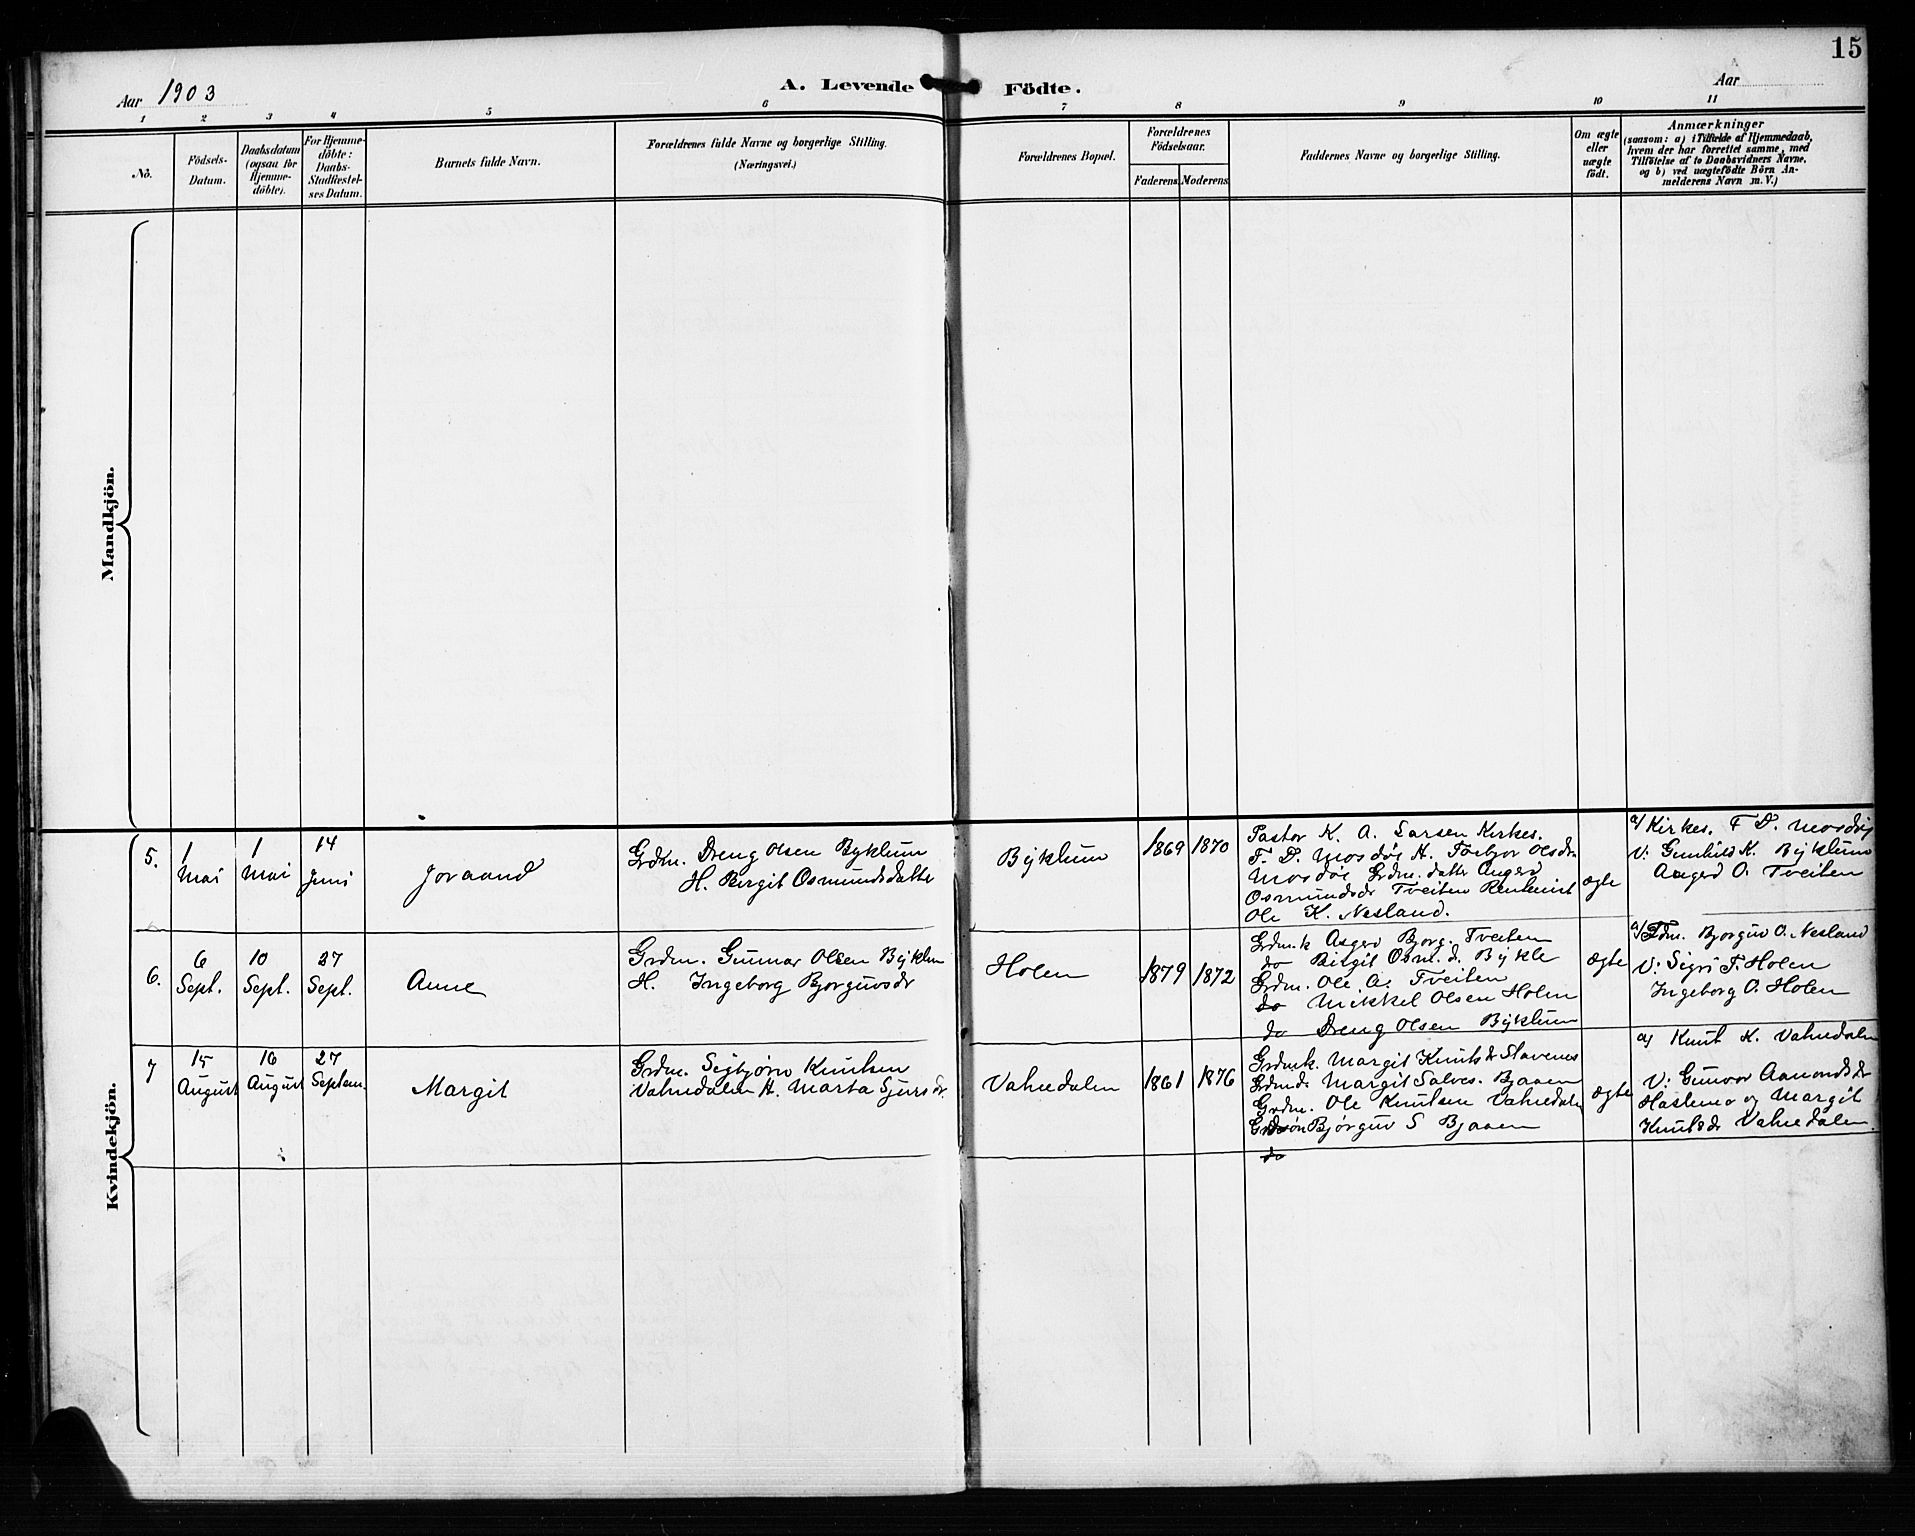 15
Aar 1903
A. Levende Födte.
Aar
1 2 3 4 5 6 7 8 9 10 11
No.
Födsels-Datum.
Daabsdatum (ogsaa for Hjemme-döbte).
For Hjemme-döbte: Daabs-Stadfæstel-ses Datum.
Barnets fulde Navn.
Forældrenes fulde Navne og borgerlige Stilling.
(Næringsvei.)
Forældrenes Bopæl.
Forældrenes Födselsaar.
Faderens. Moderens.
Faddernes Navne og borgerlige Stilling.
Om ægte eller uægte födt.
Anmærkninger
(saasom: a) i Tilfælde af Hjemmedaab,
hvem der har forrettet samme, med
Tilföielse af to Daabsvidners Navne.
og b) ved uægtefödte Börn An-
melderens Navn m. V.)
Mandkjön.
Kvindekjön.
5.
1 Mai
1 Mai
14 Juni
Joraand
Grdm. Dreng Olsen Byklum
H. Birgit Osmundsdatter
Byklum
1869 1870
Pastor K. A. Larsen Kirkes.
T. D. Mosdøl H. Torbjor Olsdr.
Mosdøl Grdm. datter Anger
Osmundsdr Tveiten
Ole K. Nesland.
ægte
a/ Kirkes. T D. Mosdøl
V: Gunhild K. Byklum
Angerd O. Tveiten
6.
6 Sept.
10 Sept.
27 Sept.
Anne
Grdm. Gunnar Olsen Byklum
H. Ingeborg Bjorguvsdr
Holen
1879 1872
Grdm.k Asgerd Bjorg. Tveiten
do Birgit Osm. d. Bykle
Grdm. Ole A. Tveiten
do Mikkel Olsen Holen
do Dreng Olsen Byklum
ægte
a/ Grdm. Bjorguv O. Nesland
V: Sigri T. Holen
Ingeborg O. Holen
7
15 August
16 August
27 Septem.
Margit
Grdm. Sigbjørn Knutsen
Vatnedalen H. Marta Sjursdr.
Vatnedalen
1861 1876
Grdmk. Margit Knutsdr Stavenes
Grdmd. Margit Salves. Bjaaen
Grdm. Ole Knutsen Vatnedalen
Grdsøn Bjørguv S Bjaaen
do
ægte
a/ Knut K. Vatnedalen
V: Gunvor Aamondsdr
Haslemo og Margit
Knutsdr Vatnedalen.